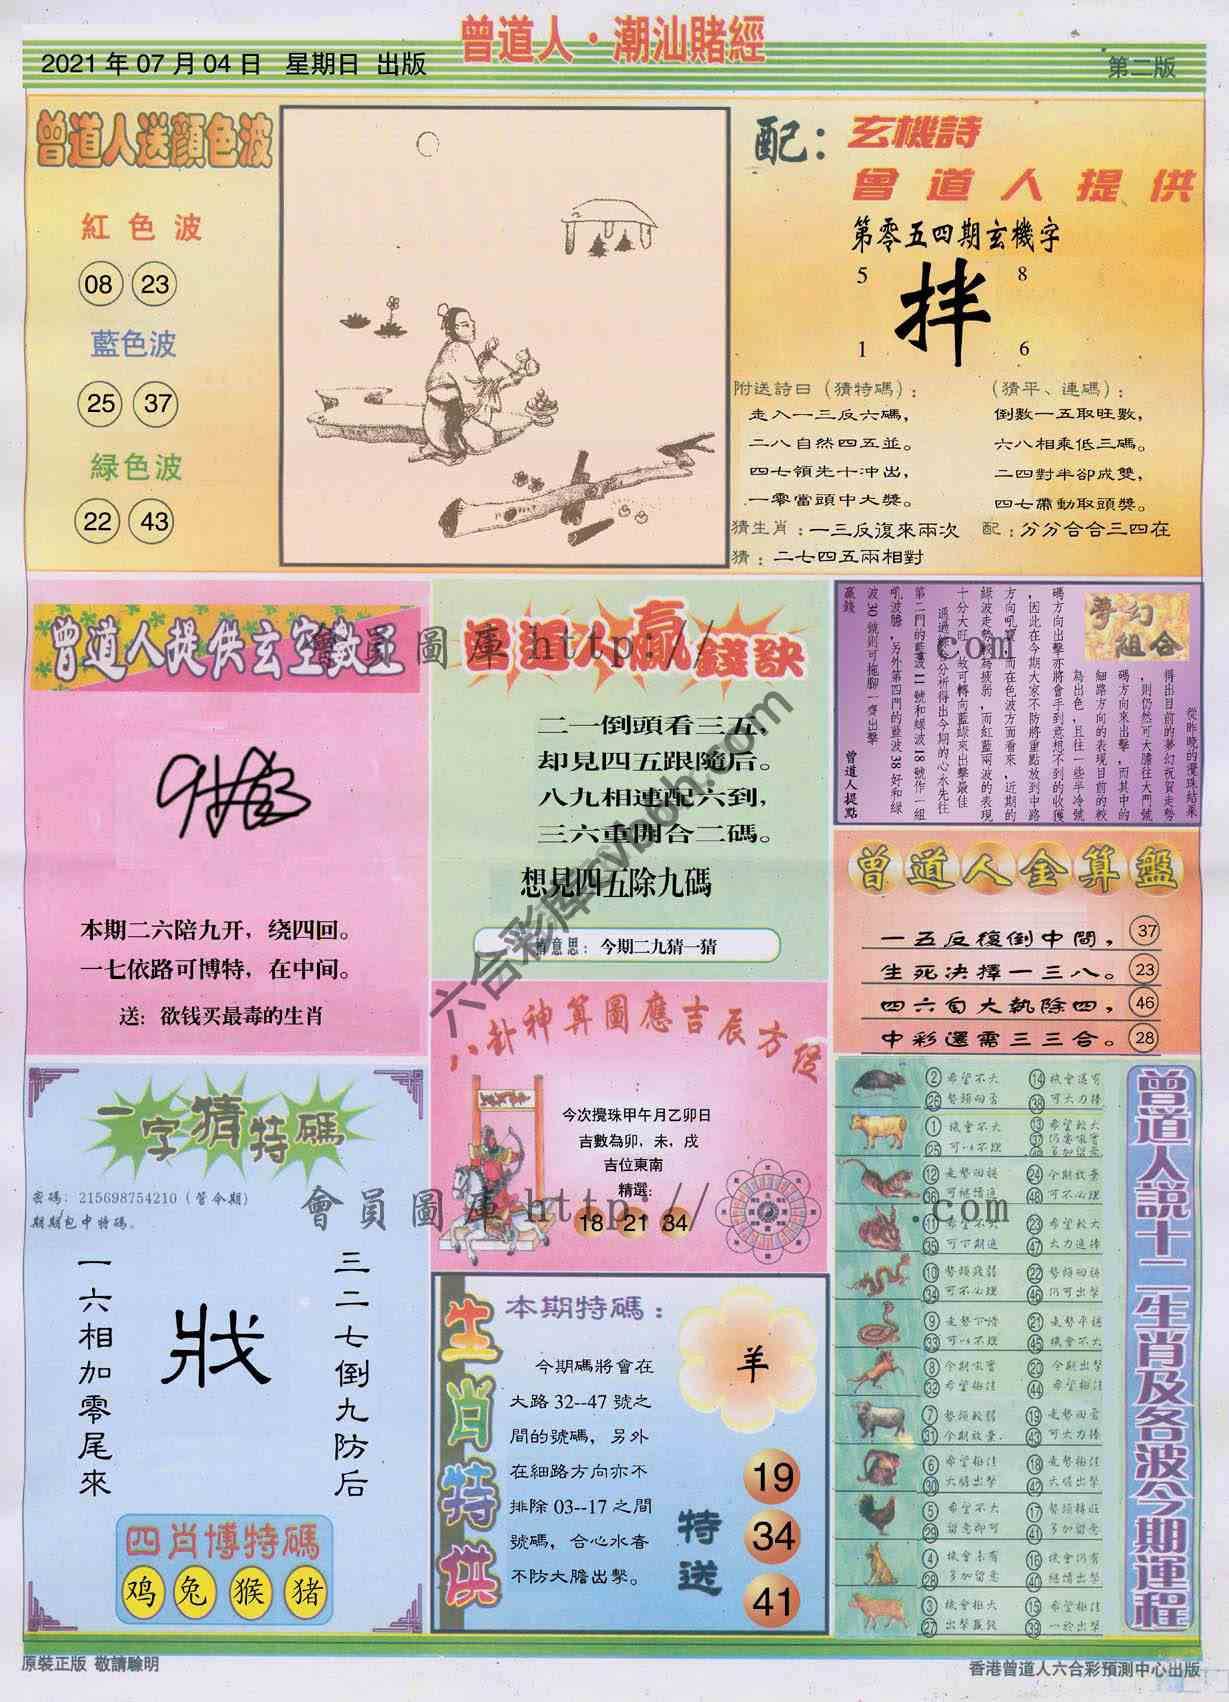 曾道人·潮汕賭經
2021年07月04日 星期日 出版
第二版
曾道人送顔色波
紅色波
08 23
藍色波
25 37
緑色波
22 43
配：玄機詩
曾道人提供
第零五四期玄機字
5 8
拌
1 6
附送詩曰（猜特碼）：
走入一三反六碼，
二八自然四五並。
四七領先十冲出，
一零當頭中大獎。
（猜平、連碼）：
倒數一五取旺數，
六八相乘低三碼。
二四對半卻成雙，
四七帶動取頭獎。
猜生肖：一三反復來兩次 配：分分合合三四在
猜：二七四五兩相對
曾道人提供玄空數王
本期二六陪九开，绕四回。
一七依路可博特，在中间。
送：欲钱买最毒的生肖
曾道人贏錢訣
二一倒頭看三五
却見四五跟隨后。
八九相連配六到，
三六重開合二碼。
想見四五除九碼
今期二九猜一猜
夢幻組合
從昨晚的攪珠結果
得出目前的夢幻祝賀走勢
，則仍然可大膽往大門號
碼方向來出擊，而其中的
細路方向的表現目前的較
為出色，且往一些半冷號
碼方向出擊亦將會手到意想不到的收獲
，因此在今期大家不防將重點放到中路
方向吼寶，而在色波方面看來，近期的
綠波走勢較為疲弱，而紅藍兩波的表現
十分大旺，故可轉向藍綠來出擊最佳
通過綜合分析得出今期的心水先往
第二門的藍波11號和绿波18號作一組
吼波膽，另外第四門的藍波38好和綠
波30號則可拖腳一齊出擊
贏錢
曾道人提點
曾道人金算盤
一五反復倒中間， 37
生死决擇一三八。 23
四六旬大執除四， 46
中彩還需三三合。 28
八卦神算圖應吉辰方位
今次攪珠甲午月乙卯日
吉數為卯，未，戌
吉位東南
精選：
18 21 34
一字猜特碼
密碼：215698754210（管今期）
期期包中特碼。
三二七倒九防后
戕
一六相加零尾來
四肖博特碼
鸡 兔 猴 猪
生肖特供
本期特碼：
羊
今期碼將會在
大路32--47號之
間的號碼，另外
在細路方向亦不
排除03--17之間
號碼，合心水春
不防大膽出擊。
特送
19
34
41
曾道人説十二生肖及各波今期運程
② 希望不大
① 機會不大
㉕ 可以不理
⑫ 走勢回穩
㉔ 今期放棄
㊽ 可不心理
㉓ 希望較大
㊼ 大力進捧
⑩ 勢頭疲弱
㉞ 可不心理
㉒ 勢頭回穩
㊻ 仍可出擊
㉝ 可以不理
㉑ 走勢平穩
㊺ 機會不大
⑳ 今期出擊
㉜ 希望極佳
㊹ 希望極佳
⑦ 勢頭較弱
㉛ 今期放棄
㊸ 可大力捧
⑥ 希望極佳
㉚ 大膽出擊
⑱ 走勢極佳
㊷ 大膽出擊
⑤ 希望不大
㉙ 留意即可
㊶ 多加留意
④ 機會未有
㉘ 多加留意
⑯ 機會仍有
㊵ 繼續出擊
③ 機會極大
⑮ 希望極佳
㊴ 一於出擊
會員圖庫 http:// .com
會員圖庫 http:// .com
原裝正版 敬請騐明
香港曾道人六合彩預測中心出版